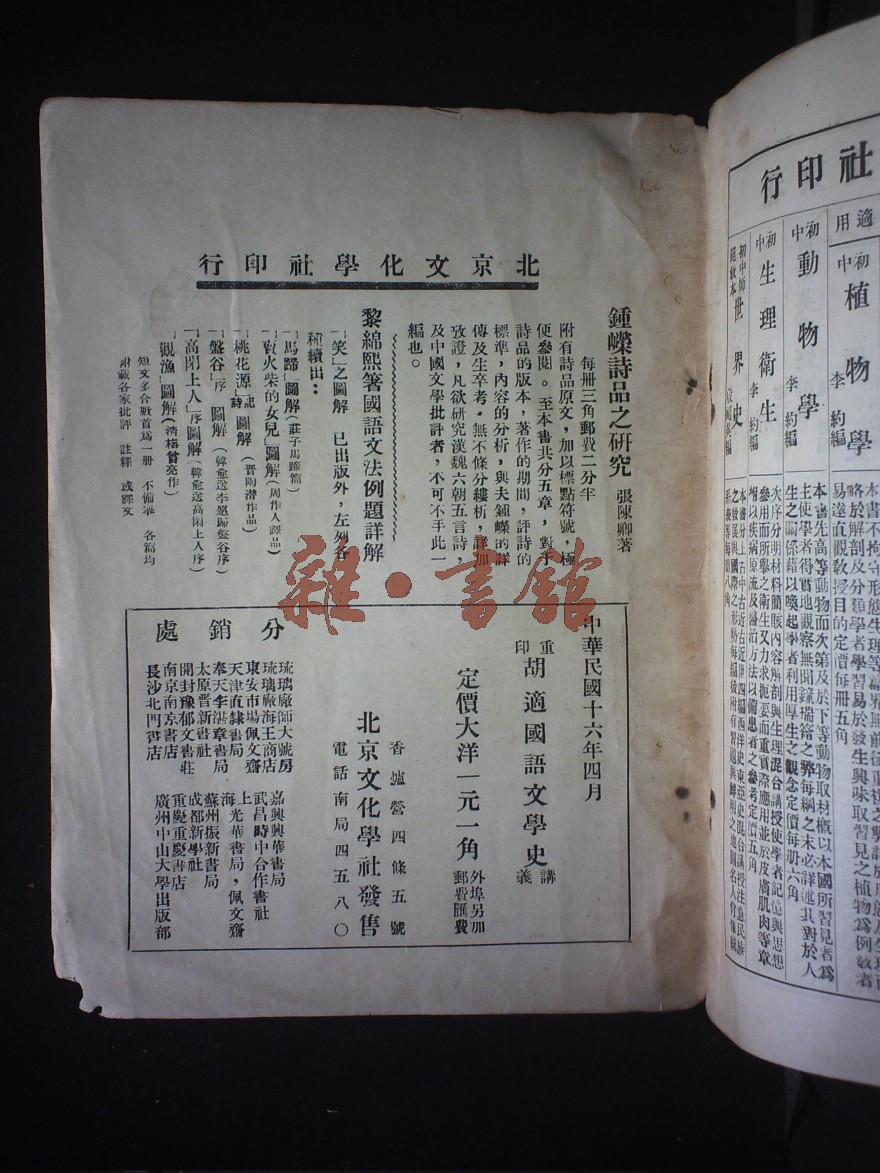 北京文化學社印行
鍾嶸詩品之研究 張陳卿著
每冊三角郵費二分半
附有詩品原文，加以標點符號，極
便參閱。至本書共分五章，對于
詩品的版本，著作的期間，評詩的
標準，內容的分析，與夫鍾嶸的評
傳及生卒考。無不條分縷析，詳加
攷證，凡欲研究漢魏六朝五言詩，
及中國文學批評者，不可不手此一
編也。
黎錦熙箸國語文法例題詳解
「笑」之圖解 已出版外，左列各
種續出：
「馬蹄」圖解（莊子馬蹄篇）
「賣火柴的女兒」圖解（周作人譯品）
「桃花源」記詩 圖解（晋陶潛作品）
「盤谷」序 圖解（韓愈送李愿歸盤谷序）
「高閑上人」序圖解（韓愈送高閑上人序）
「觀漁」圖解（清梅曾亮作）
短文多合數首爲一册 不備舉 各篇均
附載各家批評 註釋 或譯文
中華民國十六年四月
重印 胡適國語文學史 講義
定價大洋一元一角 外埠另加郵費匯費
香爐營四條五號
北京文化學社發售
電話南局四五八〇
分銷處
琉璃廠師大號房
琉璃廠海王商店
東安市場佩文齋
天津直隸書局
奉天李湛章書局
太原晋新書社
開封豫郁文書莊
南京南京書店
長沙北門書店
嘉興興華書局
武昌時中合作書社
上海光華書局，佩文齋
蘇州振新書局
成都新學社
重慶重慶書店
廣州中山大學出版部
社印行
適用
初中植物學 李約編
本書不拘守形態生理等篇界無前後重複之弊
略於解剖及分類學者學習易於發生興味取習見之植物爲例敎者
易達直觀敎授目的定價每册五角
初中動物學 李約編
本書先高等動物而次第及於下等動物取材槪以本國所習見者爲
主使學者得實地觀察無聞鐘揣籥之弊每綱之末必詳述其對於人
生之關係藉以喚起學者利用厚生之觀念定價每册六角
初中生理衛生 李約編
次序分明材料簡賅內容解剖與生理混合講授使學者記憶與思想
參用而所舉之衛生又力求扼要而重實際應用並於皮膚肌肉等章
增以疾病原流及醫治方法以備患者之參考定價五角
初中師範敎本 世界史
本書分上古中古近古近世四編西洋史東亞史混合講授注意民族
之發展與國際之形勢每編後附有習題與鮮明之地圖
雜·書館